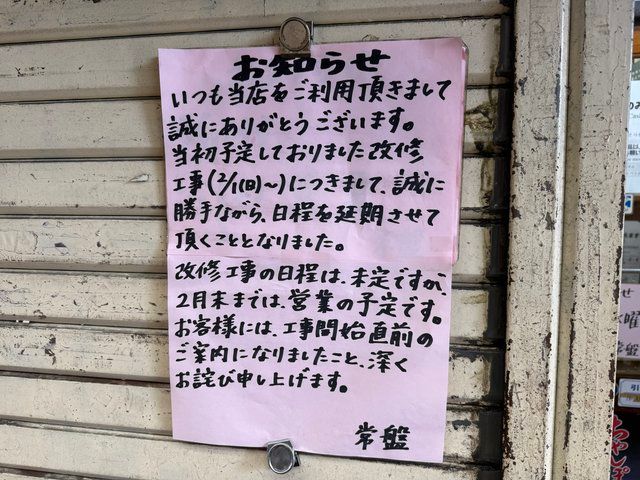 お知らせ
いつも当店をご利用頂きまして
誠にありがとうございます。
当初予定しておりました改修
工事(2/1(日)~)につきまして、誠に
勝手ながら、日程を延期させて
頂くこととなりました。
改修工事の日程は、未定ですが、
2月末までは、営業の予定です。
お客様には、工事開始直前の
ご案内になりましたこと、深く
お詫び申し上げます。
常盤
せ
曜
常盤